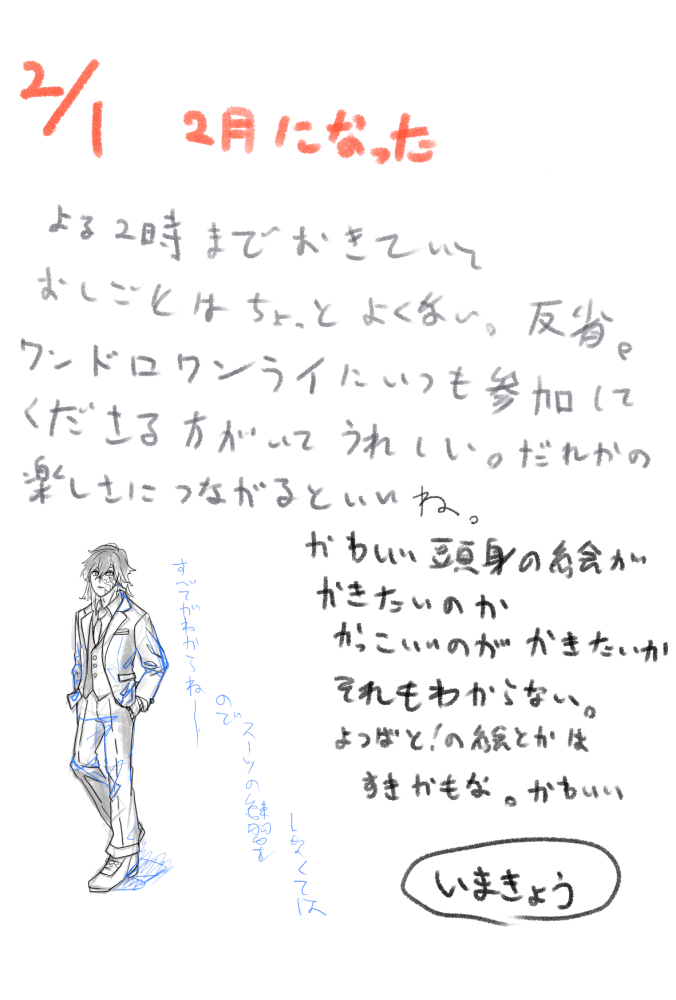 2/1 2月になった
よる2時までおきていて
おしごとはちょっとよくない。反省。
ワンドロワンライにいつも参加して
くださる方がいてうれしい。だれかの
楽しさにつながるといいね。
かわいい頭身の絵が
かきたいのか
かっこいいのがかきたいか
それもわからない。
よつばと!の絵とかは
すきかもな。かわいい
すべてがわからねー
のでスーツの練習を
しなくては
いまきょう